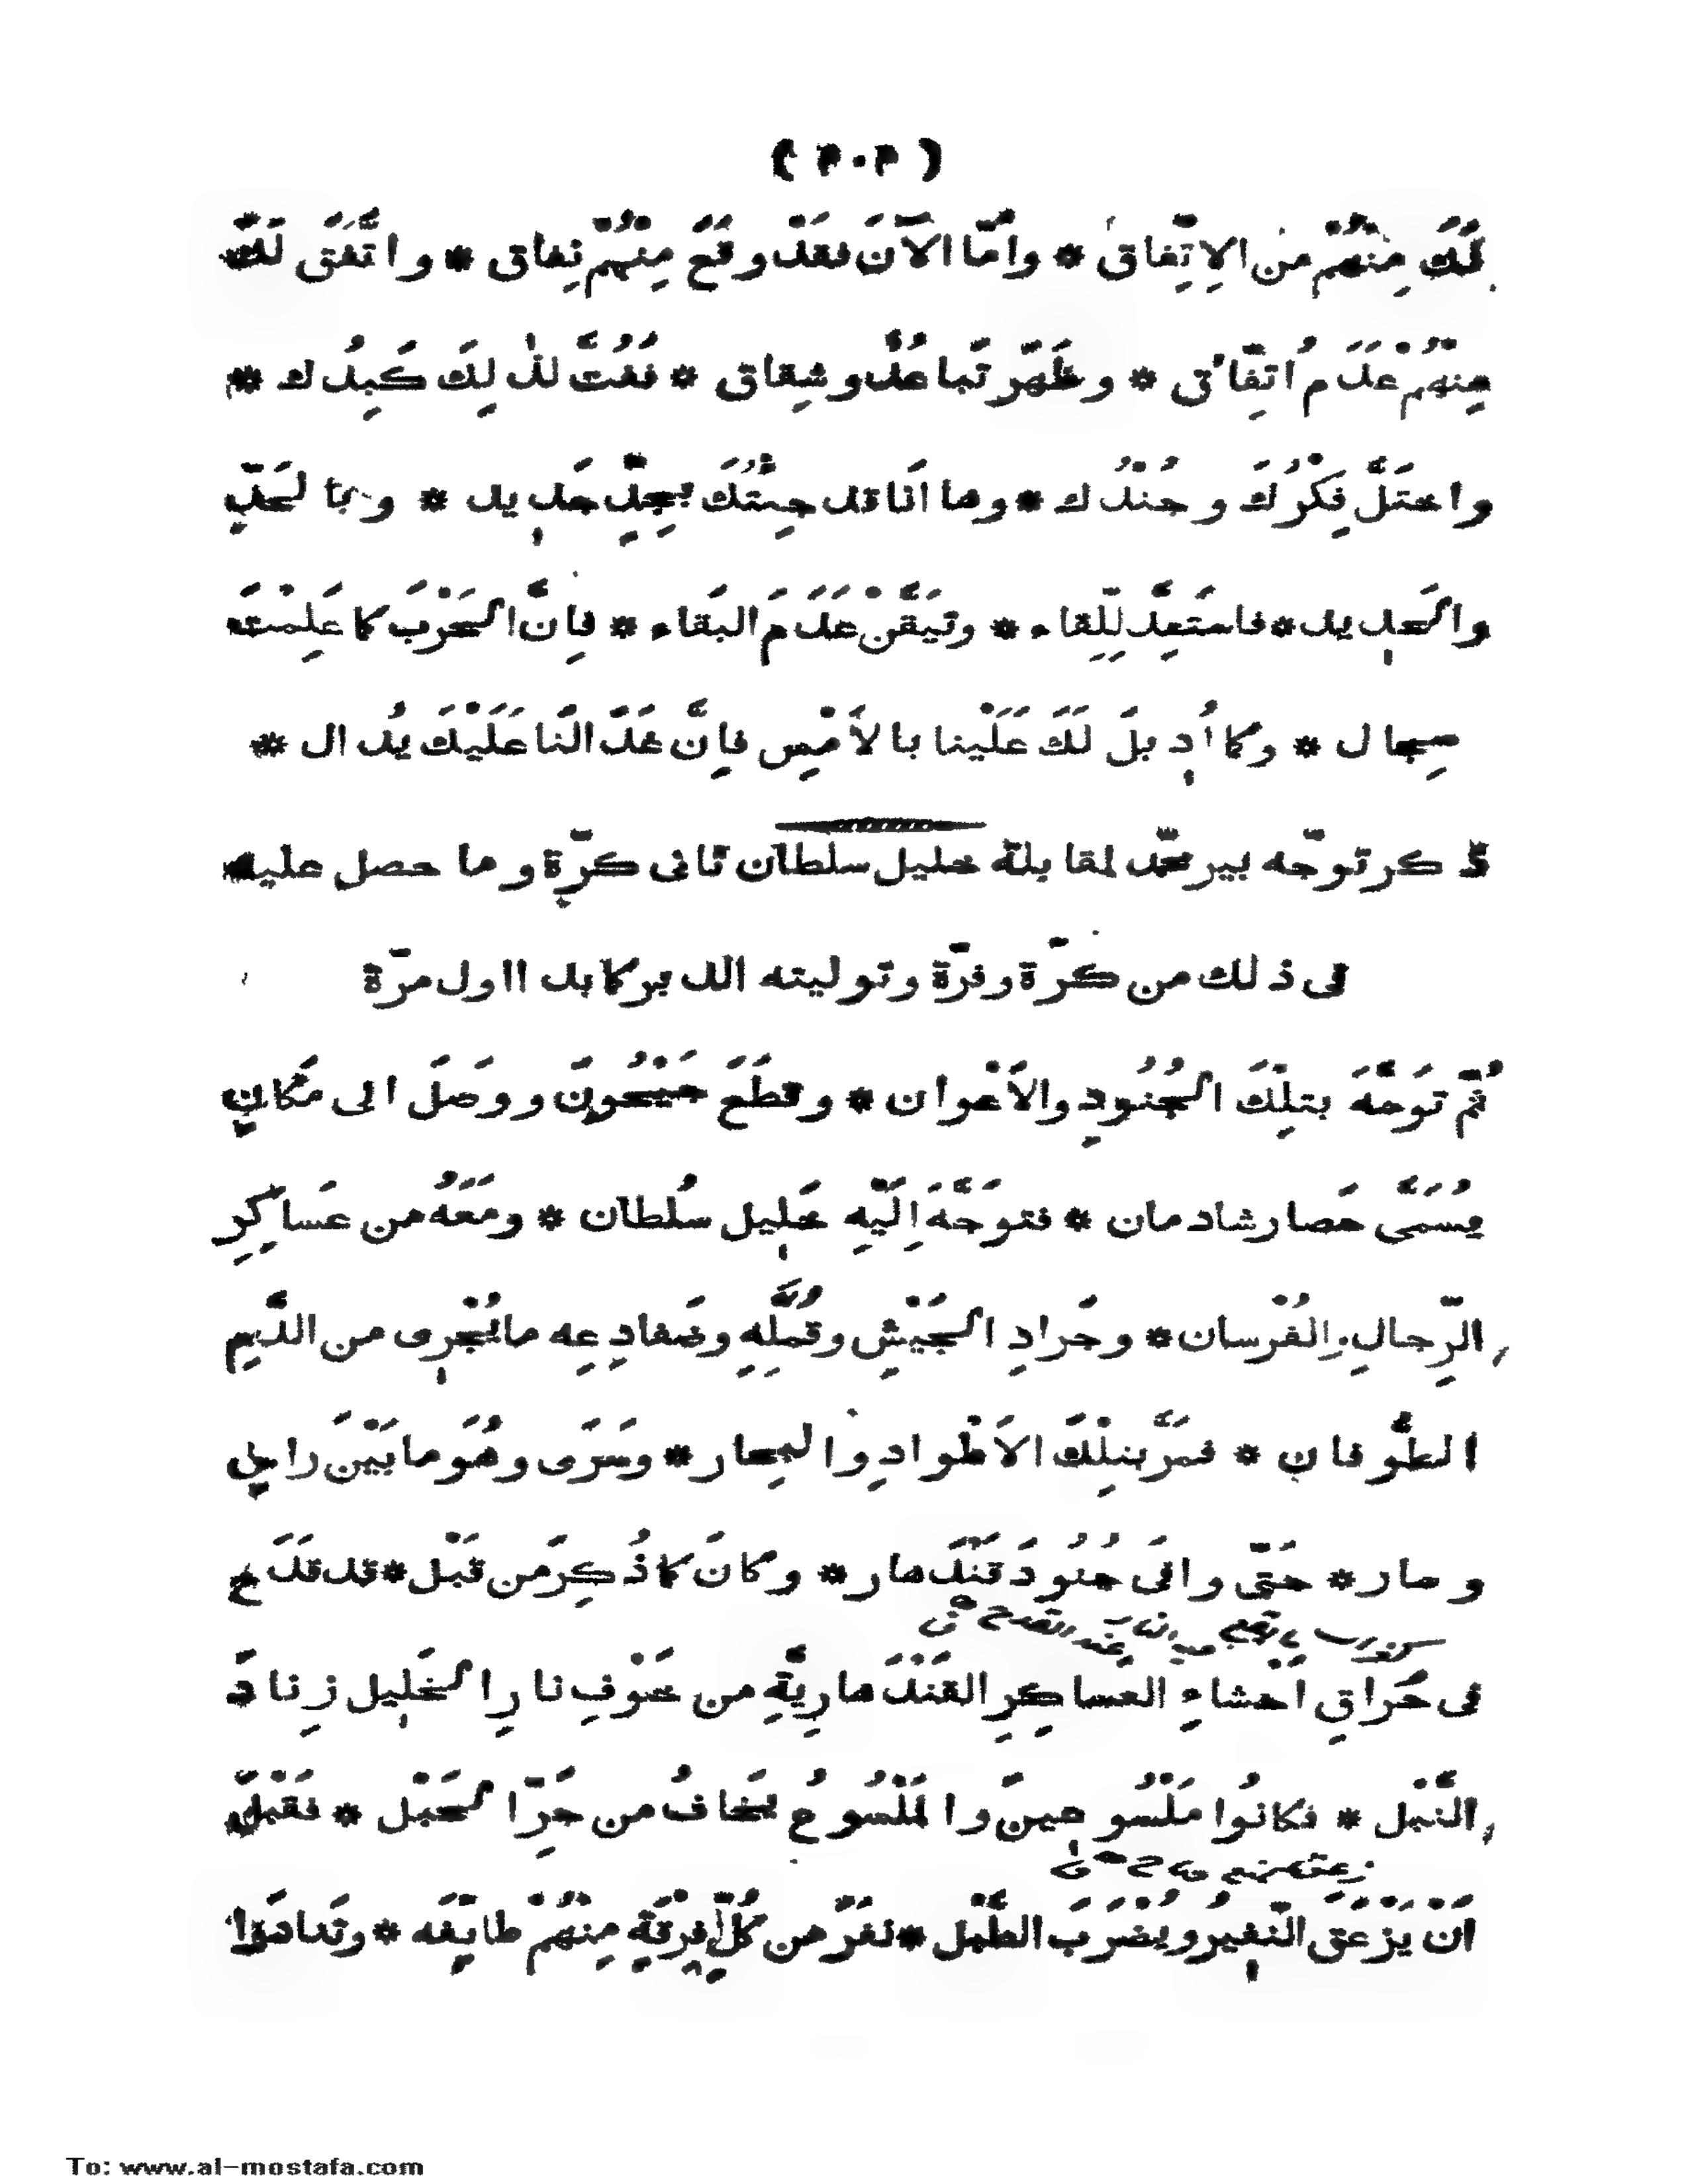 ( ٣٠٣ )
لَكَ مِنْهُمْ مِن الاِتِّفاق * وامّا الآنَ فقَدْ وقَعَ مِنْهُمْ نِفاق * واتَّفَقَ لَكَ
مِنْهُمْ عَدَمُ اتِّفاق * وظَهَرَ تَباعُدٌ وشِقاق * فَفُتَّ لذٰلِكَ كَبِدُك *
واختَلَّ فِكْرُكَ وجُنْدُك * وها انَا قد جِئْتُكَ بِجِدٍّ جَدِيد * وبالحَدِّ
والحَدِيد * فاستَعِدَّ لِلِّقاء * وتَيَقَّنْ عَدَمَ البَقاء * فاِنَّ الحَرْبَ كما عَلِمْتَ
سِجال * وكما اُدِيلَ لَكَ عَلَيْنا بالاَمْسِ فاِنَّ غَدًا لَنا عَلَيْكَ يُدال *
ذكر توجّه بير محمّد لمقابلة خليل سلطان ثانى كرّة وما حصل عليه
فى ذلك من كرّة وفرّة وتوليته الدبر كما بدا اول مرّة
ثُمّ تَوَجَّهَ بتِلْكَ الجُنُودِ والاَعْوان * وقَطَعَ جَيْحُونَ ووَصَلَ الى مَكانٍ
يُسَمَّى حَصار شادمان * فتَوَجَّهَ اِلَيْهِ خَلِيل سُلْطان * ومَعَهُ من عَساكِرِ
الرِّجالِ والفُرْسان * وجَرادِ الجَيْشِ وقُمَّلِهِ وضَفادِعِه ما يُجْرِى من الدَّمِ
الطُّوفان * فمَرَّ بتِلْكَ الاَطْوادِ والبِحار * وسَرَى وهُوَ ما بَيْنَ راسٍ
وسار * حَتّى وافَى جُنُودَ قَنْدَهار * وكانَ كما ذُكِرَ من قَبْل * قد قَدَحَ
فى حُراقِ اَحْشاءِ العساكِرِ القَنْدَهارِيَّةِ من خَوْفِ نارِ الخَلِيل زِنادَ
النَّبْل * فكانُوا مَلْسُوعِينَ والمَلْسُوعُ يَخافُ من جَرِّ الحَبْل * فقَبْلَ
اَنْ يَزْعَقَ النَّفِيرُ ويُضْرَبَ الطَّبْل * نفَرَ من كُلِّ فِرْقَةٍ مِنْهُمْ طايِفَه * وتَنادَوْا
To: www.al-mostafa.com